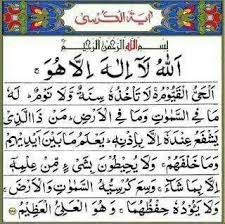 آية الكرسى
بسم الله الرحمن الرحيم
اَللهُ لَآ اِلٰهَ اِلَّا هُوَۚ
اَلْحَىُّ الْقَيُّوْمُ لَا تَاْخُذُهٗ سِنَةٌ وَّلَا نَوْمٌ لَهٗ
مَا فِى السَّمٰوٰتِ وَمَا فِى الْاَرْضِ مَنْ ذَا الَّذِىْ
يَشْفَعُ عِنْدَهٗٓ اِلَّا بِاِذْنِهٖ يَعْلَمُ مَا بَيْنَ اَيْدِيْهِمْ
وَمَا خَلْفَهُمْ وَلَا يُحِيْطُوْنَ بِشَىْءٍ مِّنْ عِلْمِهٖٓ
اِلَّا بِمَا شَآءَ وَسِعَ كُرْسِيُّهُ السَّمٰوٰتِ وَالْاَرْضَ
وَلَا يَـُٔوْدُهٗ حِفْظُهُمَا وَهُوَ الْعَلِىُّ الْعَظِيْمُ